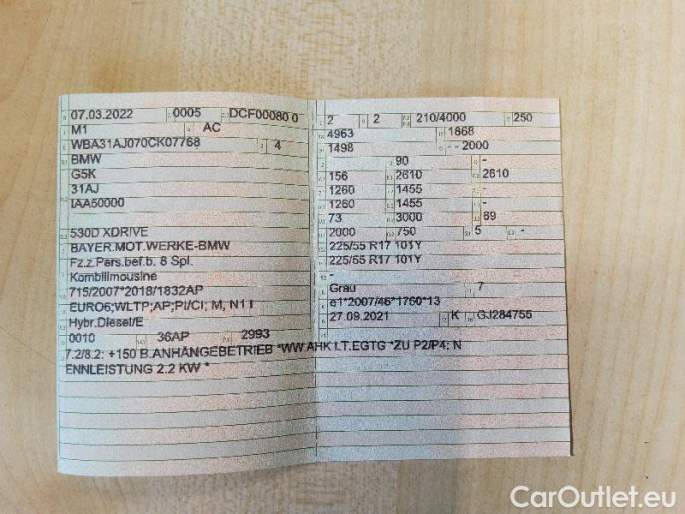 07.03.2022 0005 DCF00080 0
M1 AC
WBA31AJ070CK07768 4
BMW
G5K
31AJ
IAA50000
530D XDRIVE
BAYER.MOT.WERKE-BMW
Fz.z.Pers.bef.b. 8 Spl.
Kombilimousine
715/2007*2018/1832AP
EURO6;WLTP;AP;PI/CI; M, N1 I
Hybr.Diesel/E
0010 36AP 2993
7.2/8.2: +150 B.ANHÄNGEBETRIEB *WW.AHK LT.EGTG *ZU P2/P4: N
ENNLEISTUNG 2.2 KW *
2 2 210/4000 250
4963 1868
1498 - - 2000
90 -
156 2610 2610
1260 1455 -
1260 1455 -
73 3000 69
2000 750 5 -
225/55 R17 101Y
225/55 R17 101Y
-
Grau 7
e1*2007/46*1760*13
27.09.2021 K GJ284755
CarOutlet.eu